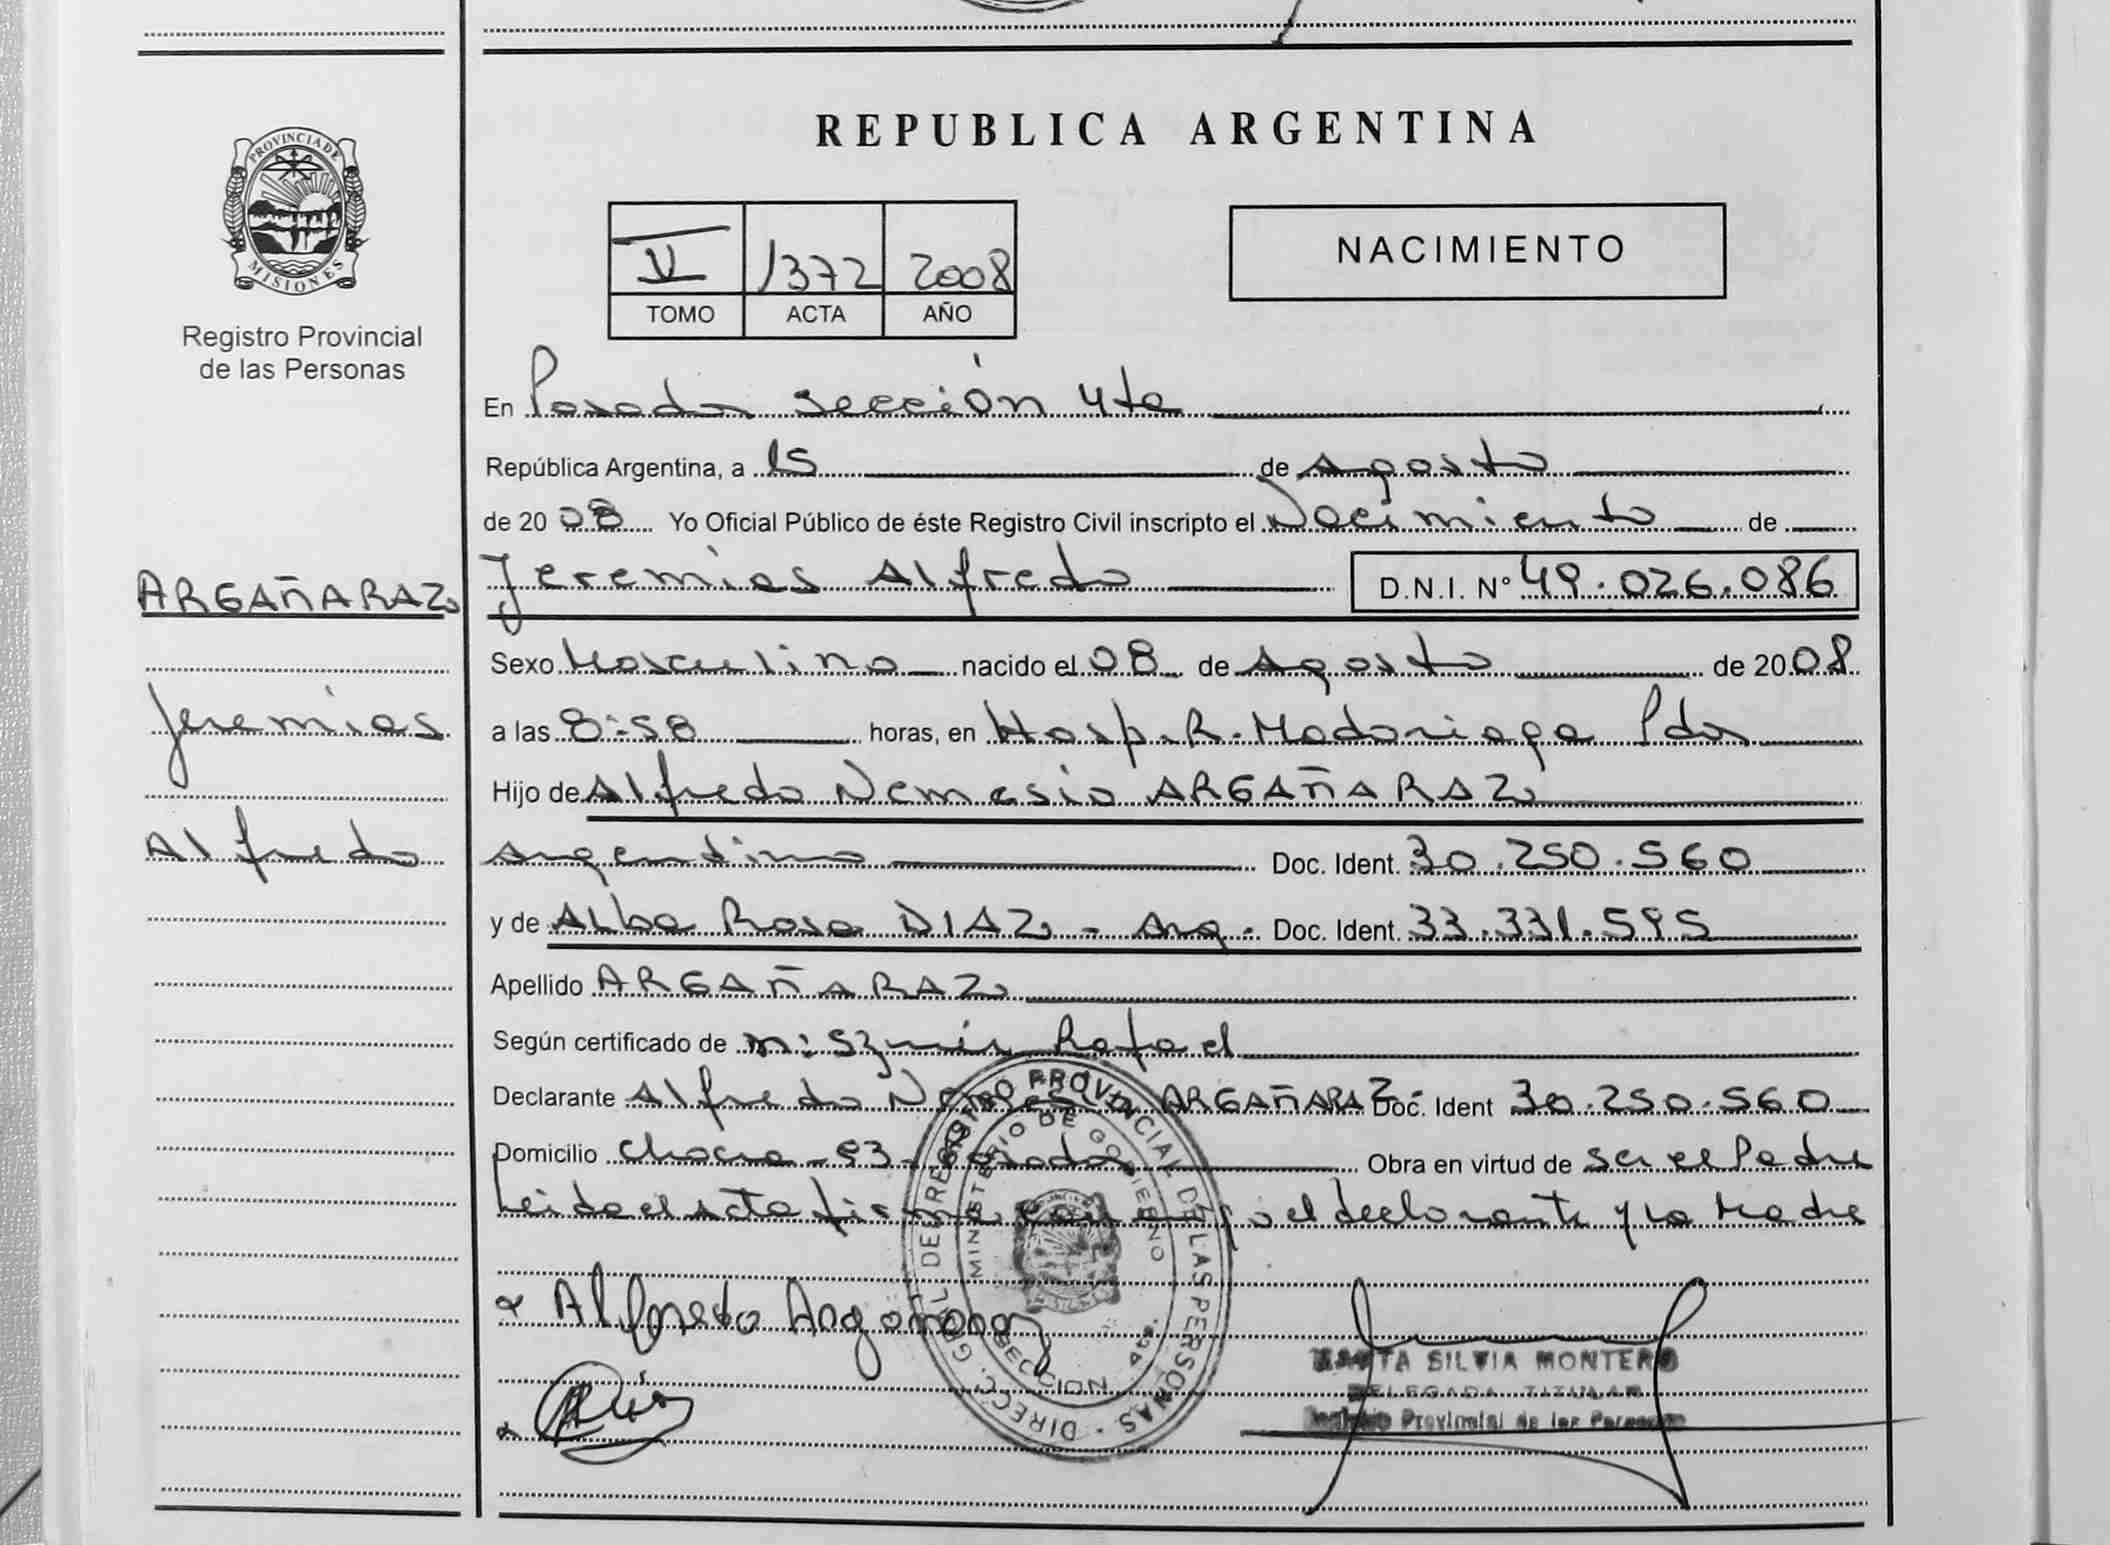 PROVINCIA DE
MISIONES
Registro Provincial
de las Personas
ARGAÑARAZ
Jeremias
Alfredo
REPUBLICA ARGENTINA
V 1372 2008
TOMO ACTA AÑO
NACIMIENTO
En Posadas sección 4ta
República Argentina, a 15 de Agosto
de 2008 Yo Oficial Público de éste Registro Civil inscripto el Nacimiento de
Jeremias Alfredo D.N.I. N° 49.026.086
Sexo Masculino nacido el 08 de Agosto de 2008
a las 8:58 horas, en Hosp. R. Madariaga Pdas
Hijo de Alfredo Nemesio ARGAÑARAZ
Argentino Doc. Ident. 30.250.560
y de Alba Rosa DIAZ - Arg. Doc. Ident. 33.331.595
Apellido ARGAÑARAZ
Según certificado de Rafael
Declarante Alfredo Nemesio ARGAÑARAZ. Doc. Ident 30.250.560
Domicilio Chacra - 93 - Posadas Obra en virtud de ser el Padre
Leida el acta firma el declarante y la Madre
DIRECC. GRAL. DE REGISTRO PROVINCIAL DE LAS PERSONAS
MINISTERIO DE GOBIERNO
SECCION 4ta.
Alfredo Argañaraz
SILVIA MONTERO
DELEGADA TITULAR
Provincial de las Personas